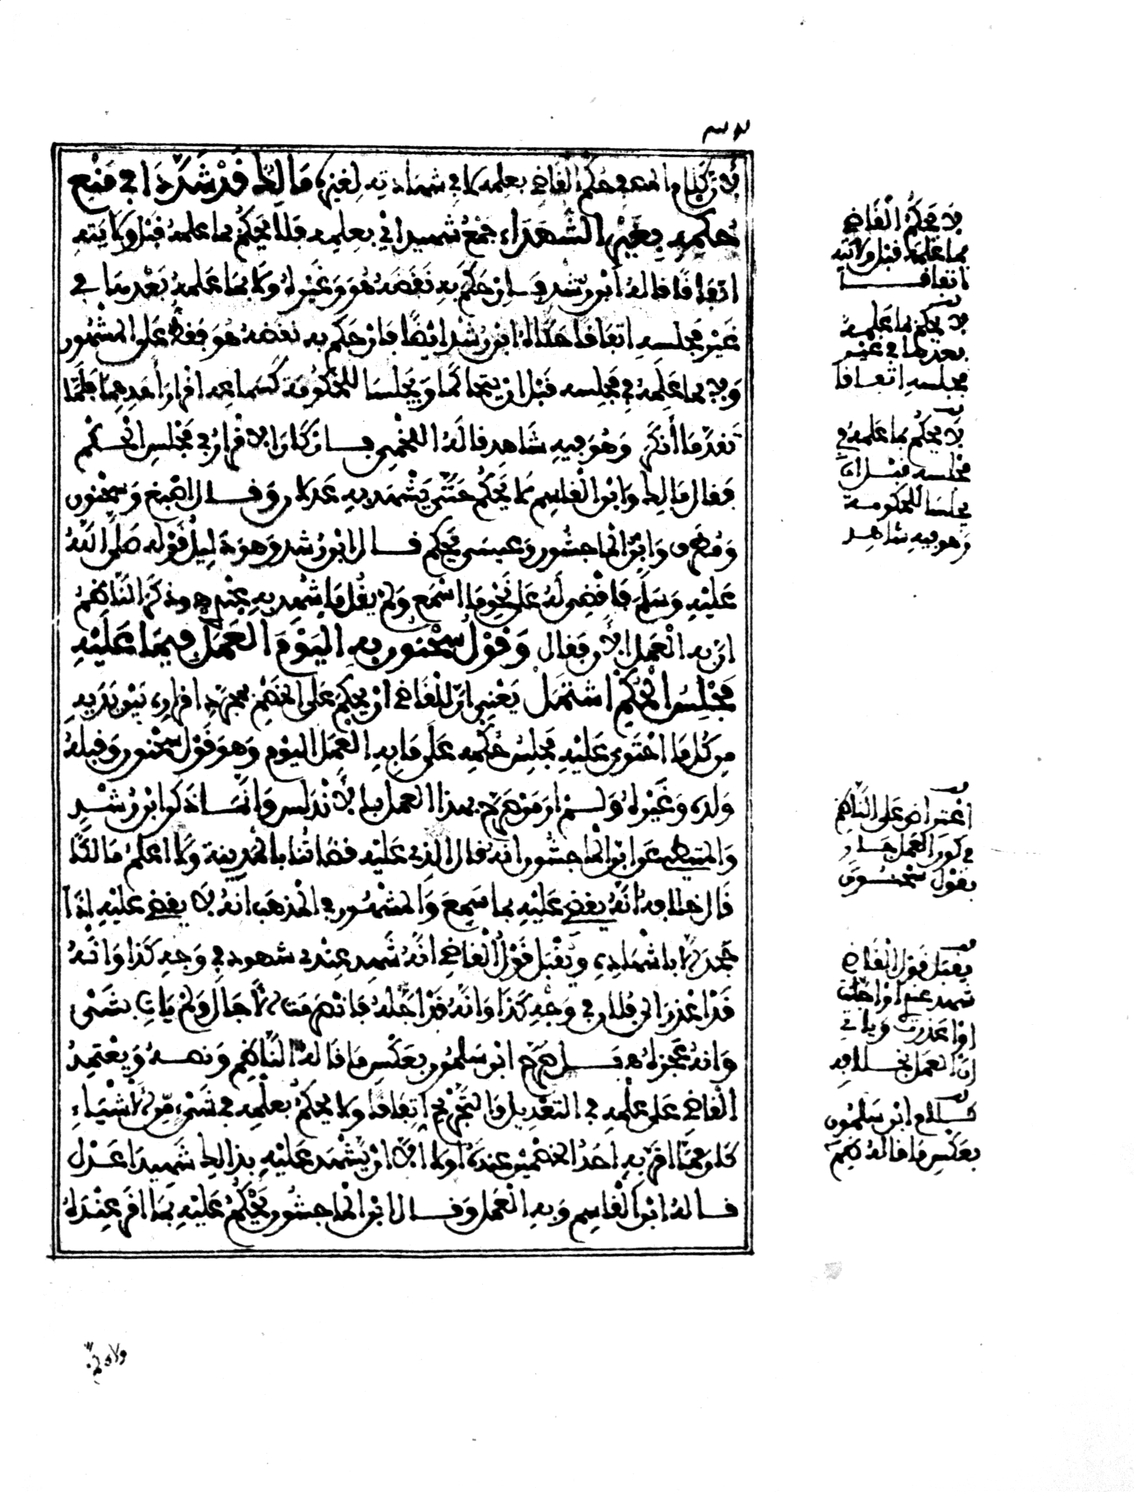 لان كلام المص في حكم القاضي بعلمه لا في شهادته لغيره مالك قد شدد ا في منع
حكمه بغير الشهداء جمع شهيد اي بعلمه فلا يحكم بما علمه قبل ولايته
اتفاقا قاله ابن رشد فان حكم به نقضه هو وغيره ولا بما علمه بعدها في
غير مجلسه اتفاقا قاله ابن رشد ايضا فان حكم به نقضه هو فقط على المشهور
ولا بما علمه في مجلسه قبل ان يتحاكما ويجلسا للحكومة كسماعه اقرار احدهما فلما
تقدما أنكر وهو فيه شاهد قاله اللخمي فان كان الاقرار في مجلس الحكم
فقال مالك وابن القاسم لا يحكم حتى يشهد به عدلان وقال اصبغ وسحنون
ومطرف وابن الماجشون وعيسى يحكم قال ابن رشد وهو دليل قوله صلى الله
عليه وسلم فاقضي له على نحو ما اسمع ولم يقل ما شهد به عندي وذكر الناظم
ان به العمل الآن فقال وقول سحنون به اليوم العمل فيما عليه
مجلس الحكم اشتمل يعني ان للقاضي ان يحكم على الخصم بمجرد اقراره بين يديه
من كل ما احتوى عليه مجلس حكمه على ما به العمل اليوم وهو قول سحنون وقبله
ولده وغيره ولم ار من صرح بهذا العمل بالأندلس وانما ذكر ابن رشد
والمتيطي عن ابن الماجشون انه قال الذي عليه قضاتنا بالمدينة ولا اعلم مالكا
قال خلافه انه يقضي عليه بما سمع والمشهور في المذهب انه لا يقضي عليه اذا
جحد الا باشهاد ويقبل قول القاضي انه شهد عندي شهود في وجه كذا وانه
قد اعذر الى فلان في وجه كذا وانه قد اجله فانصرمت الآجال ولم يات بشئ
وانه عجزه قد صرح ابن سلمون بعكس ما قاله الناظم ونصه ويعتمد
القاضي على علمه في التعديل والتجريح اتفاقا ولا يحكم بعلمه في شئ من الاشياء
كان مما اقر به احد الخصمين عنده اولا الا ان يشهد عليه بذالك شهيدا عدل
قاله ابن القاسم وبه العمل وقال ابن الماجشون يحكم عليه بما اقر عنده
لا يحكم القاضي
بما علمه قبل ولايته
اتفاقا
لا يحكم بما علمه
بعدها في غير
مجلسه اتفاقا
لا يحكم بما علمه في
مجلسه قبل ان
يجلسا للحكومة
وهو فيه شاهد
اعتراض على الناظم
في كون العمل جار
بقول سحنون
يقبل قول القاضي
شهد عندي او اجلت
او اعذرت ويأتي
ان العمل بخلافه
كلام ابن سلمون
بعكس ما قاله ناظم